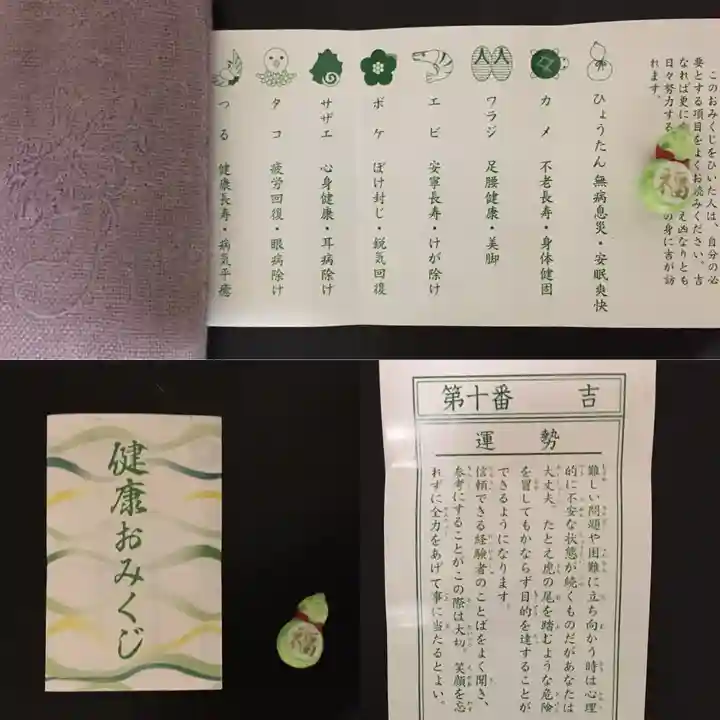 このおみくじをひいた人は、自分の必
要とする項目をよくお読みください。吉
なれば更に
え凶なりとも
日々努力する
の身に吉が訪
れます。
福
ひょうたん 無病息災・安眠爽快
カメ 不老長寿・身体健固
ワラジ 足腰健康・美脚
エビ 安寧長寿・けが除け
ボケ ぼけ封じ・鋭気回復
サザエ 心身健康・耳病除け
タコ 疲労回復・眼病除け
つる 健康長寿・病気平癒
健康おみくじ
福
第十番 吉
運勢
難しい問題や困難に立ち向かう時は心理
的に不安な状態が続くものだがあなたは
大丈夫。たとえ虎の尾を踏むような危険
を冒してもかならず目的を達することが
できるようになります。
信頼できる経験者のことばをよく聞き、
参考にすることがこの際は大切。笑顔を忘
れずに全力をあげて事に当たるとよい。